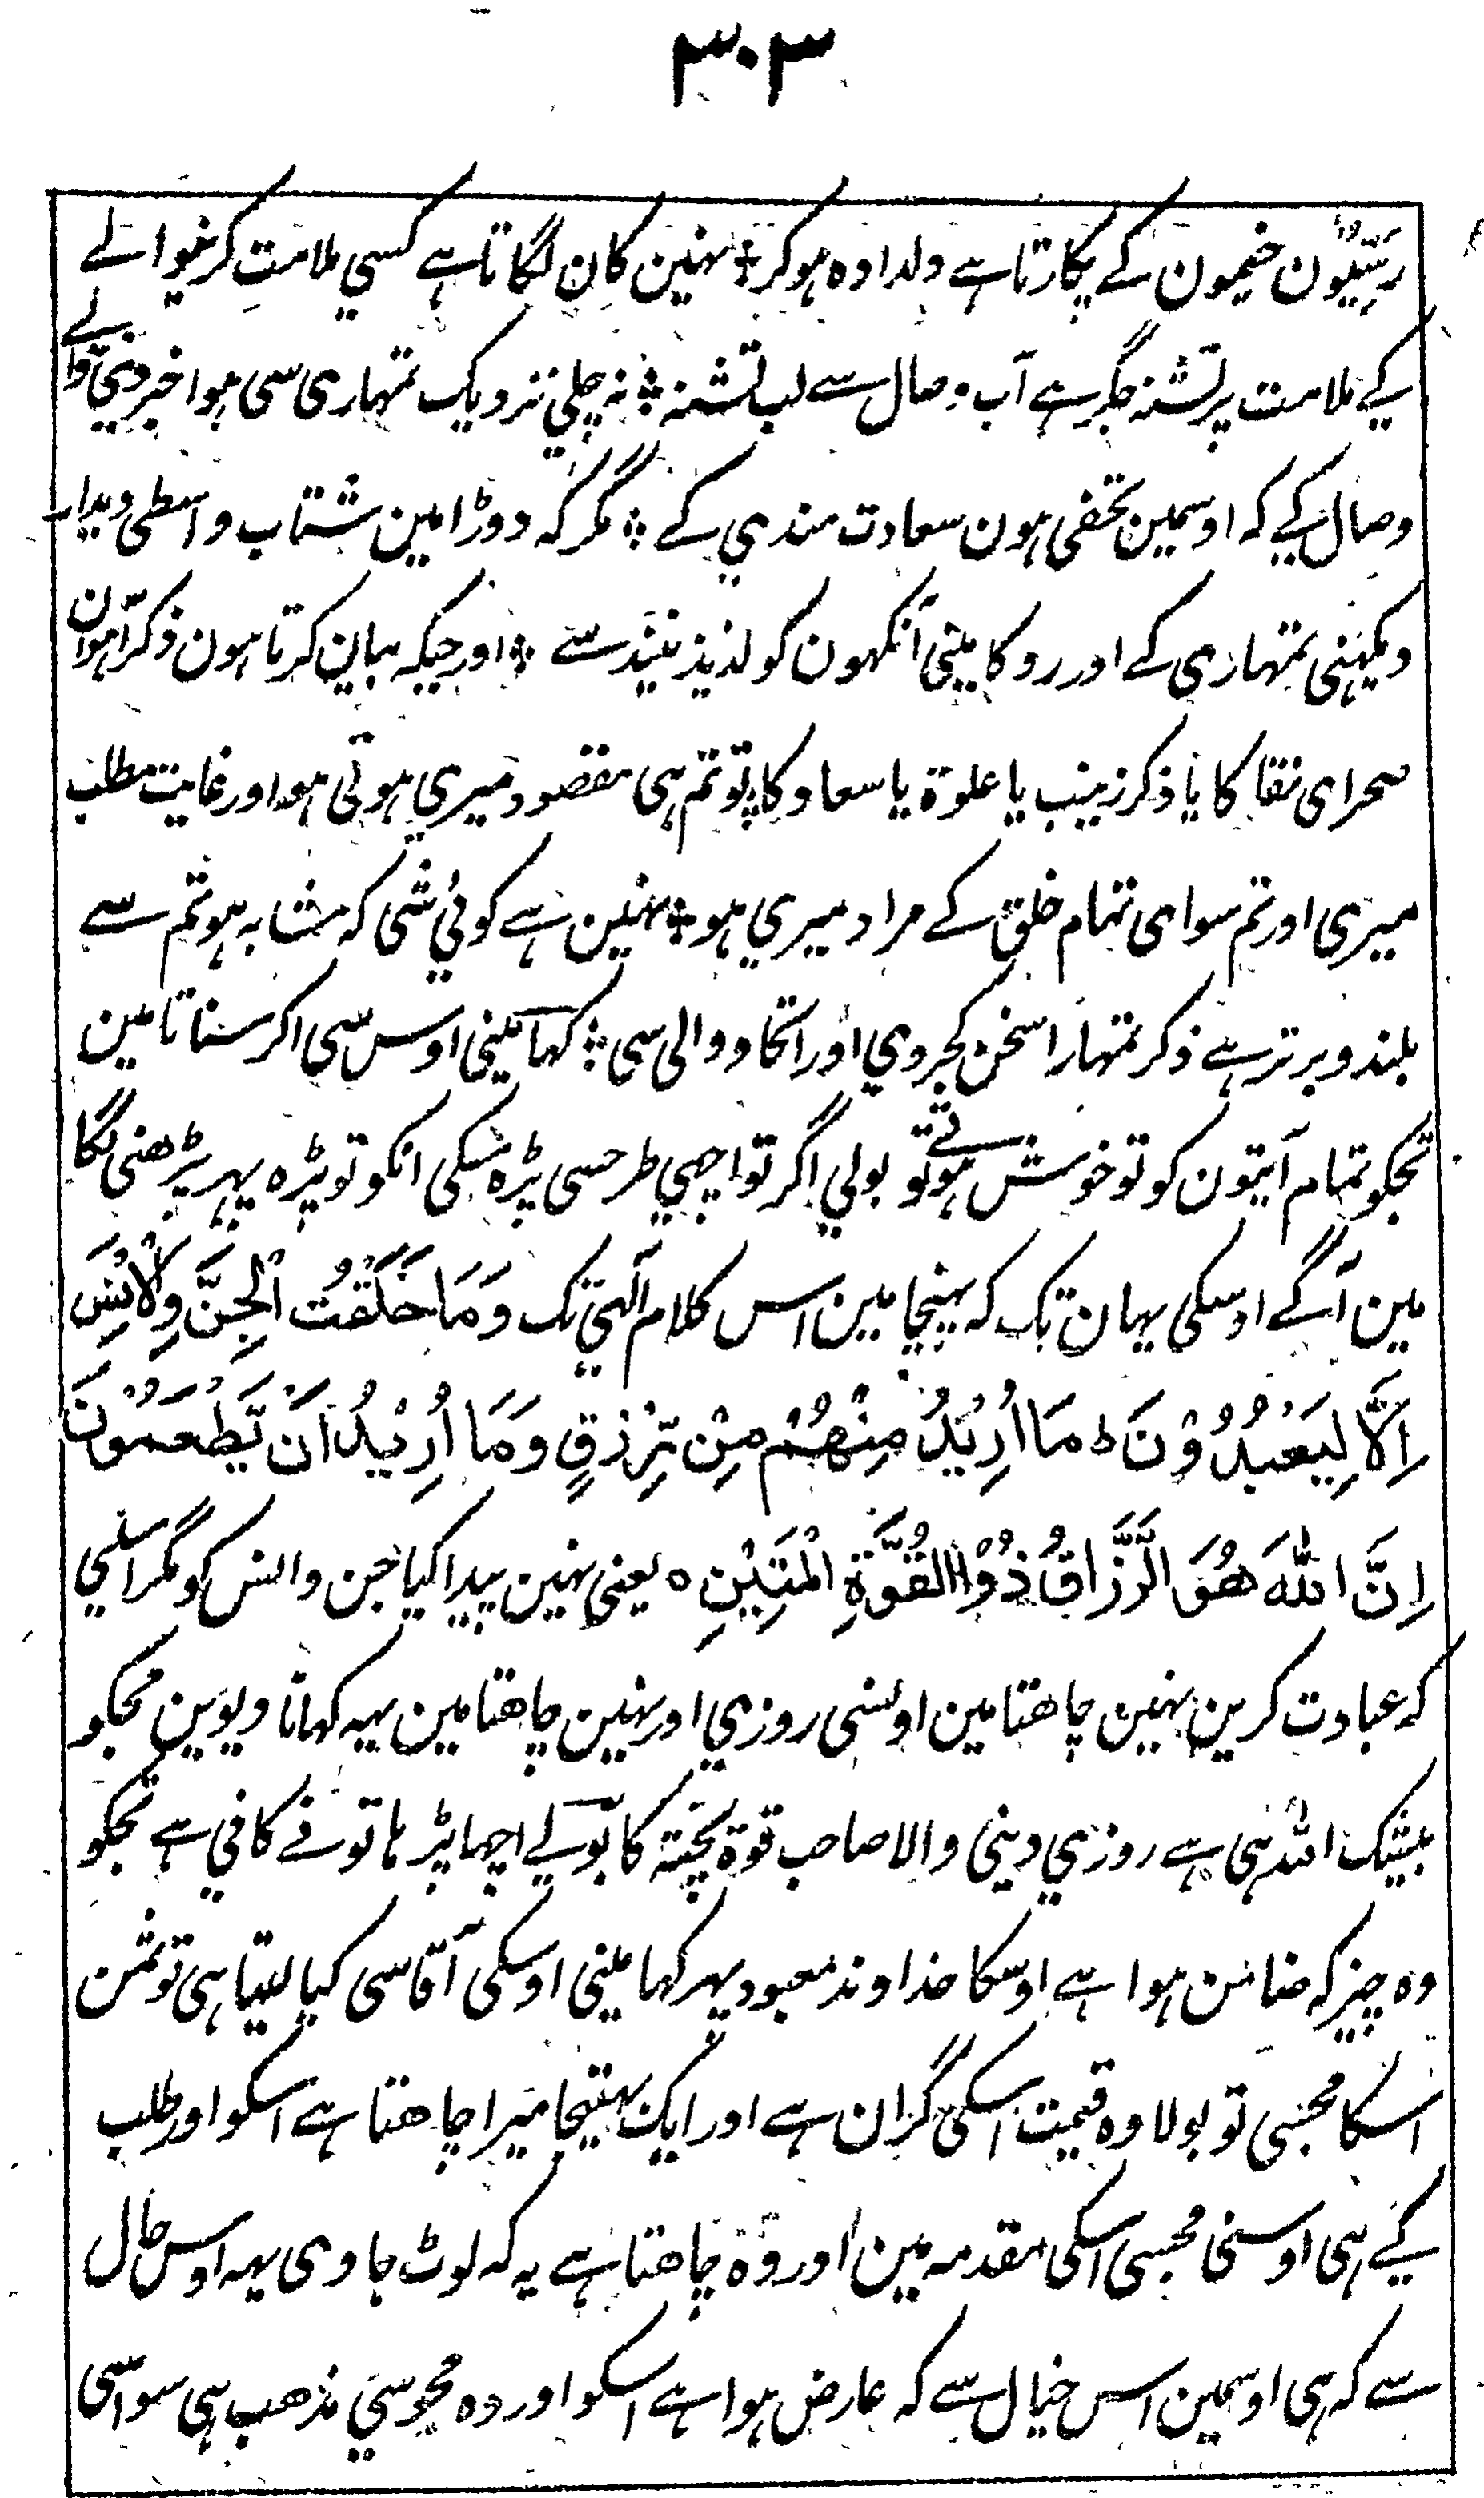 ۳۰۳
رسّیون خیمون کے پکارتا ہے دلدادہ ہوکر ÷ نہین کان لگاتا ہے کسی ملامت کرنیوالے
کے ملامت پر تشنہ جگر ہے آب وصال سے لب تشنہ ÷ نہ چلی نزدیک تمہاری سی ہوا خبر دینی والے
وصال کے کہ اوسمین مخفی ہون سعادت مندی کے ÷ مگر کہ دوڑا مین شتاب واسطی دیدار
دیکہنی تمہاری کے اور روکا مینی آنکہون کو لذیذ نیند سے ÷ اور جبکہ بیان کرتا ہون ذکر آہوان
صحرای نقا کا یا ذکر زینب یا علوة یا سعاد کا ÷ تو تم ہی مقصود میری ہوتی ہو اور غایت مطلب
میری اور تم سوای تمام خلق کے مراد میری ہو ÷ نہین ہے کوئی شی کہ مشابہ ہو تم سے
بلند و برتر ہے ذکر تمہارا سخن کجروی اور اتحاد والی سی ÷ کہا مینی اوس سی اگر سناتا مین
تجکو تمام آیتون کو تو خوش ہوتے تو بولی اگر تو اچہی طرحسی پڑہ سکی انکو تو پڑہ پہر پڑھنی لگا
مین آگے اوسکی یہان تک کہ پہنچا مین اس کلام آلہی تک وَمَا خَلَقْتُ الْجِنَّ وَلْاِنْسَ
اِلَّا لِیَعْبُدُوْنَ ط مَا اُرِیْدُ مِنْهُمْ مِنْ رِّزْقٍ وَمَا اُرِیْدُ اَنْ یَّطْعَمُوْنَ
اِنَّ اللّٰهَ هُوَ الرَّزَّاقُ ذُوْا الْقُوَّةِ الْمَتِیْنِ ہ یعنی نہین پیدا کیا جن و انس کو مگر اسلیی
کہ عبادت کرین نہین چاھتا مین اونسی روزی اور نہین چاھتا مین یہہ کہانا دیوین مجکو
بیشک اللہ ہی ہے روزی دینی والا صاحب قوة پختہ کا بولے اچھا پڑہا تونے کافی ہے تجکو
وہ چیز کہ ضامن ہوا ہے اوسکا خداوند معبود پہر کہا مینی اوسکی آقا سی کیا لیتا ہی تو ثمن
اسکا مجہسی تو بولا وہ قیمت اسکی گران ہے اور ایک بہتیجا میرا چاھتا ہے اسکو اور طلب
کے ہی اوسنی مجہسی اسکی مقدمہ مین اور وہ چاھتا ہے یہ کہ لوٹ جاوی یہہ اوس حال
سے کہ ہی اوسمین اس خیال سے کہ عارض ہوا ہے اسکو اور وہ مجوسی مذھب ہی سو اسی